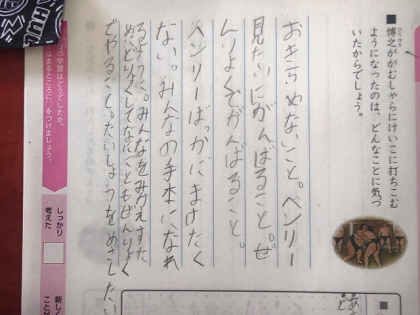 ■博之ががむしゃらにけいこに打ちこむ
ひろゆき
ようになったのは、どんなことに気づ
いたからでしょう。
おきらめないこと。ベンリー
見たいにがんばること。ぜ
んりょくでがんばること。
ベンリーばっかにまけたく
ない。みんなの手本になれ
るように。みんなをみかえすた
めどりょくしてなにごともぜんりょく
でやること。たいしょうをめざしたい
日の学習はどうでしたか。
はまるところに○をつけましょう。
しっかり
考えた
新しく
ことが